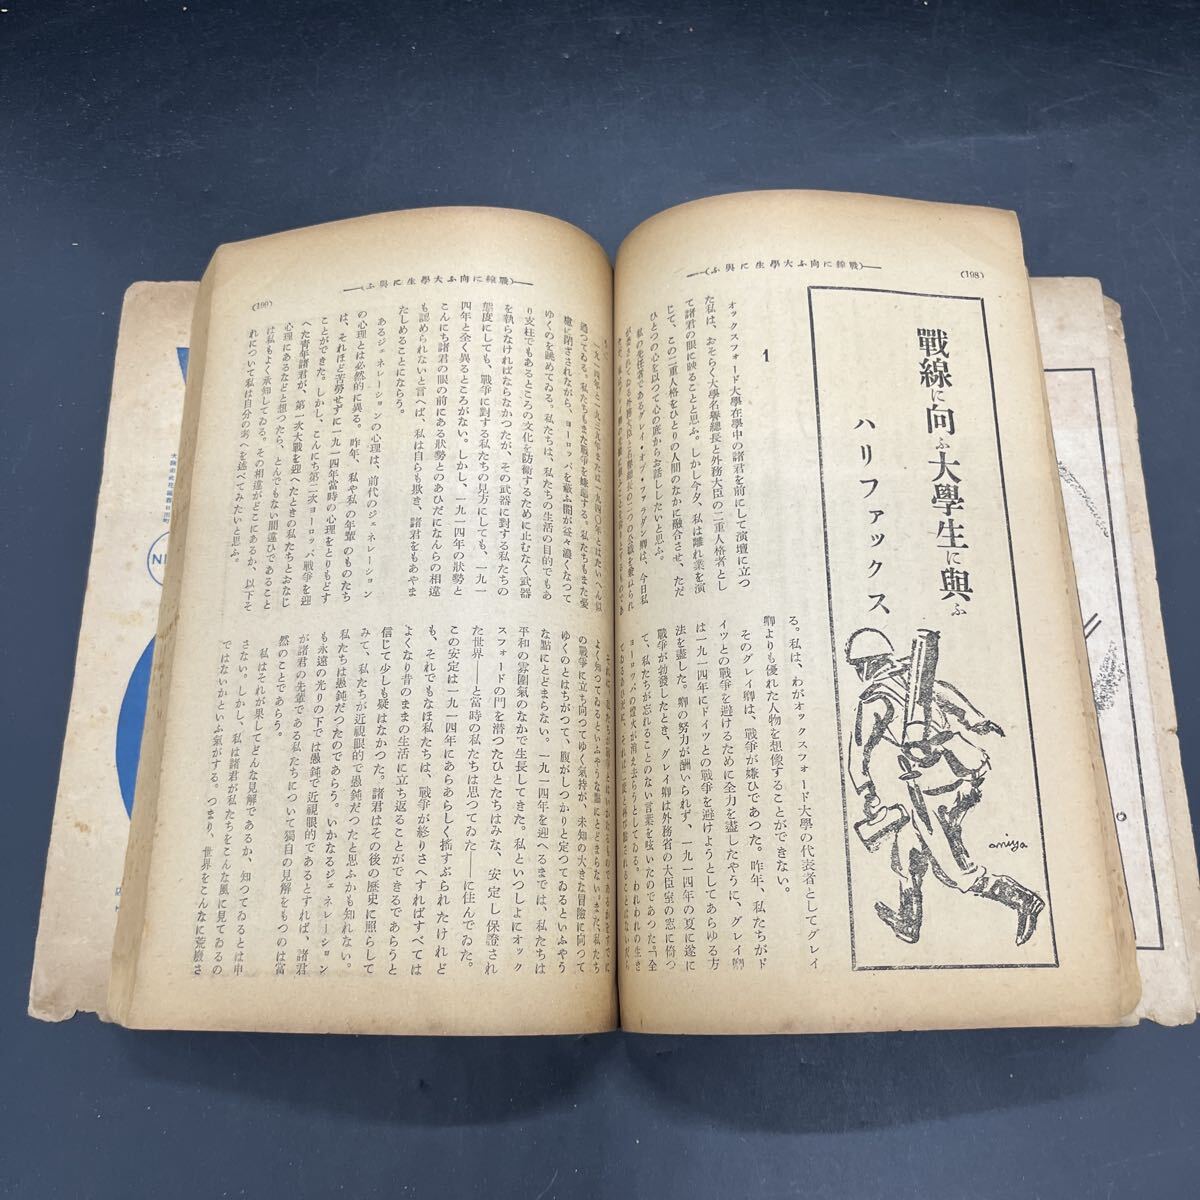 (198)
―(戰線に向ふ大學生に與ふ)―
戰線に向ふ大學生に與ふ
ハリファックス
aniya
1
オックスフォード大學在學中の諸君を前にして演壇に立つ
た私は、おそらく大學名譽總長と外務大臣の二重人格者とし
て諸君の眼に映ることと思ふ。しかし今夕、私は離れ業を演
じて、この二重人格をひとりの人間のなかに融合させ、ただ
ひとつの心を以つて心の底からお話ししたいと思ふ。
私の先任者であるグレイ・オブ・ファラダン卿は、今日私
る。私は、わがオックスフォード大學の代表者としてグレイ
卿よりも優れた人物を想像することができない。
そのグレイ卿は、戰爭が嫌ひであつた。昨年、私たちがド
イツとの戰爭を避けるために全力を盡したやうに、グレイ卿
は一九一四年にドイツとの戰爭を避けようとしてあらゆる方
法を盡した。卿の努力が酬いられず、一九一四年の夏に遂に
戰爭が勃發したとき、グレイ卿は外務省の大臣室の窓に倚つ
て、私たちが忘れることのない言葉を呟いたのであつた。「全
ヨーロッパの燈火が消え去らうとしてゐる。われわれの生き
―(戰線に向ふ大學生に與ふ)―
(199)
一九一四年と一九三九年または一九四〇年とはたいへん似
通つてゐる。私たちもまた戰爭を嫌惡する。私たちもまた憂
慮に閉されながら、ヨーロッパを蔽ふ闇が益々濃くなつて
ゆくのを眺めてゐる。私たちは、私たちの生活の目的でもあ
り支柱でもあるところの文化を防衞するために止むなく武器
を執らなければならなかつたが、その武器に對する私たちの
態度にしても、戰爭に對する私たちの見方にしても、一九一
四年と全く異るところがない。しかし、一九一四年の狀勢と
こんにち諸君の眼の前にある狀勢とのあひだになんらの相違
も認められないと言へば、私は自らも欺き、諸君をもあやま
たしめることにならう。
あるジェネレーションの心理は、前代のジェネレーション
の心理とは必然的に異る。昨年、私や私の年輩のものたち
は、それほど苦勞せずに一九一四年當時の心理をとりもどす
ことができた。しかし、こんにち第二次ヨーロッパ戰爭を迎
へた靑年諸君が、第一次大戰を迎へたときの私たちとおなじ
心理にあるなどと想つたら、とんでもない間違ひであること
は私もよく承知してゐる。その相違がどこにあるか、以下そ
れについて私は自分の考へを述べてみたいと思ふ。
よく知つてゐるといふやうな點にとどまらない。また、私たち
の戰爭に立ち向つてゆく氣持が、未知の大きな冒險に向つて
ゆくのとはちがつて、腹がしつかりと定つてゐるといふやう
な點にとどまらない。一九一四年を迎へるまでは、私たちは
平和の雰圍氣のなかで生長してきた。私といつしよにオック
スフォードの門を潜つたひとたちはみな、安定し保證され
た世界――と當時の私たちは思つてゐた――に住んでゐた。
この安定は一九一四年にあらあらしく搖すぶられたけれど
も、それでもなほ私たちは、戰爭が終りさへすればすべては
よくなり昔のままの生活に立ち返ることができるであらうと
信じて少しも疑はなかつた。諸君はその後の歷史に照らして
みて、私たちが近視眼的で愚鈍だつたと思ふかも知れない。
私たちは愚鈍だつたのであらう。いかなるジェネレーション
も永遠の光りの下では愚鈍で近視眼的であるとすれば、諸君
が諸君の先輩である私たちについて獨自の見解をもつのは當
然のことであらう。
私はそれが果してどんな見解であるか、知つてゐるとは申
さない。しかし、私は諸君が私たちをこんな風に見てゐるの
ではないかといふ氣がする。つまり、世界をこんなに荒廢さ